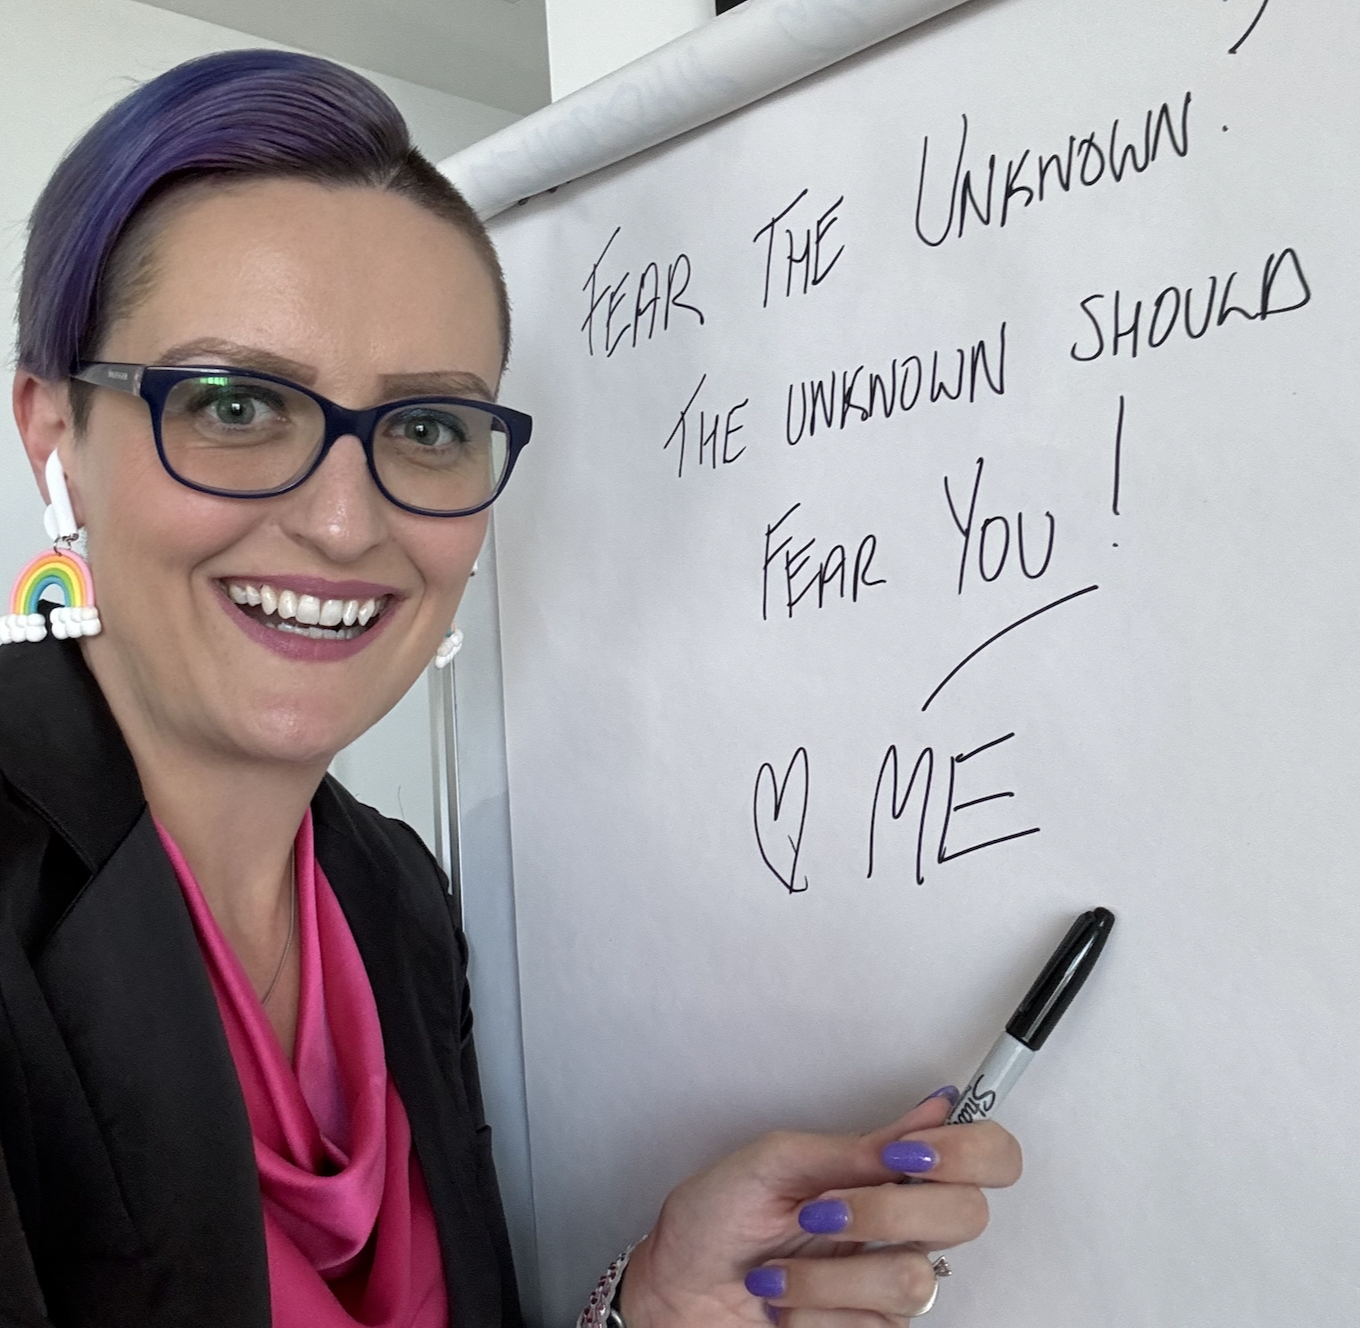 FEAR THE UNKNOWN.
THE UNKNOWN SHOULD
FEAR YOU!
♡ ME